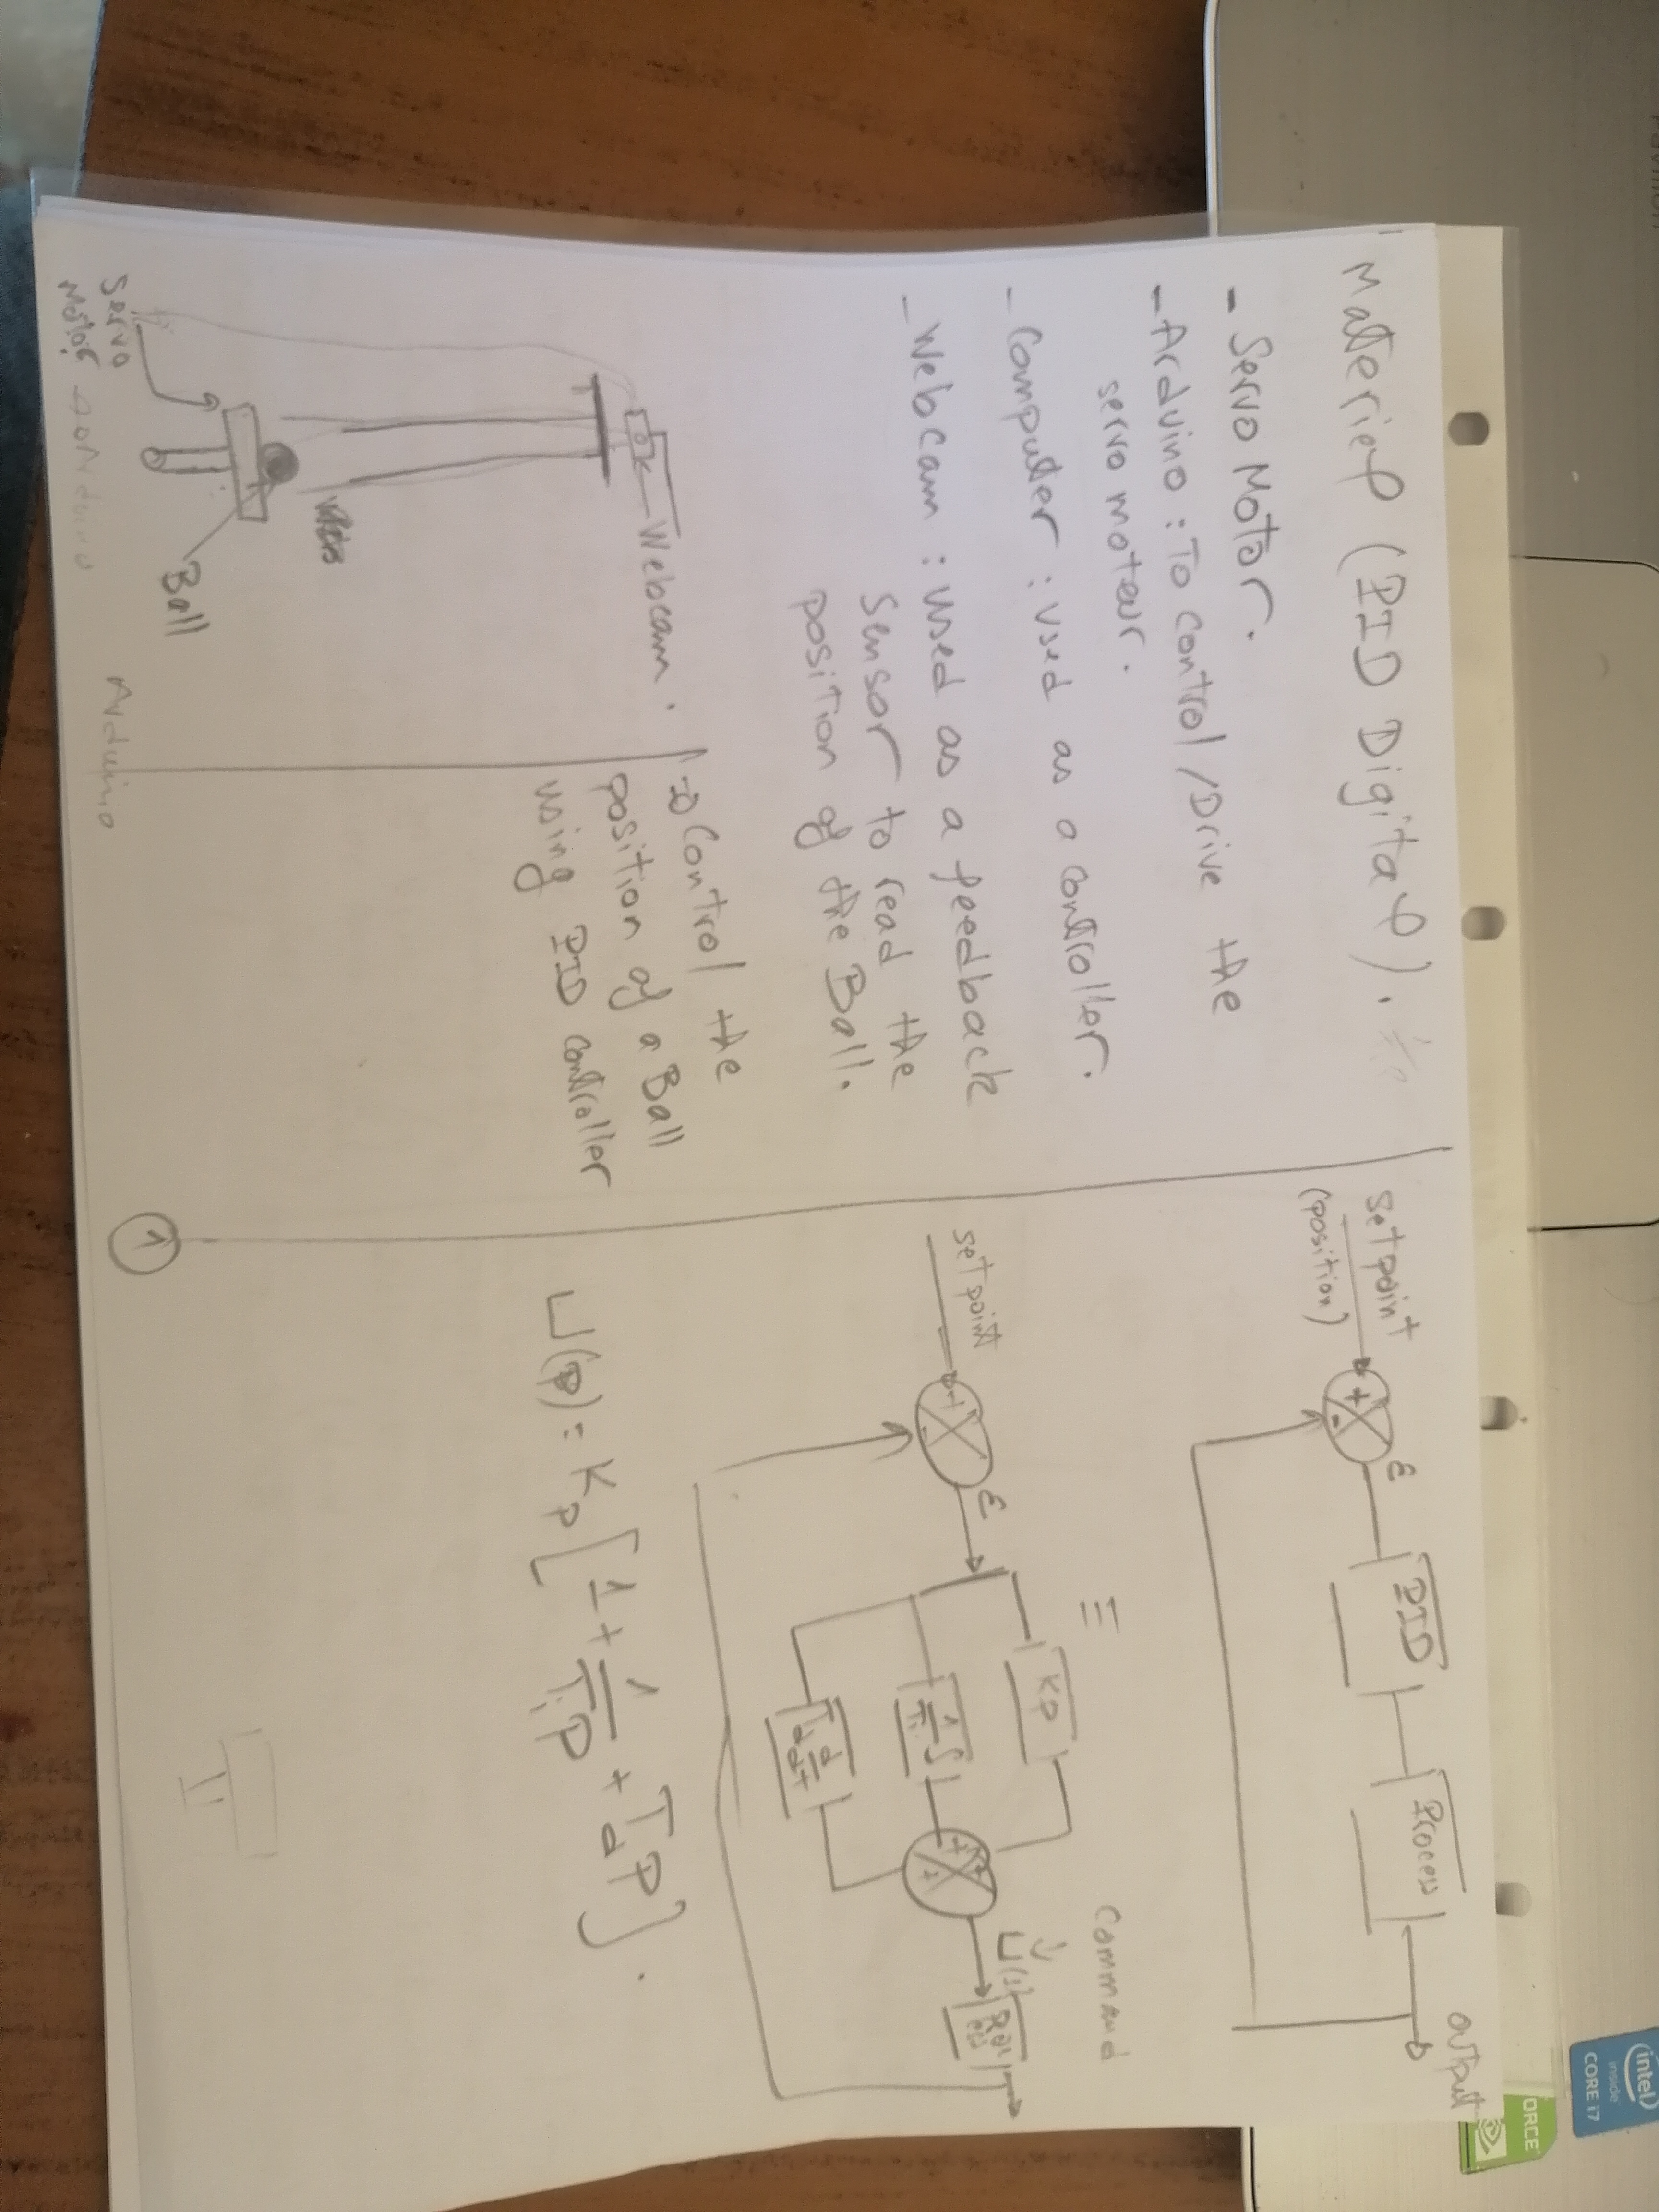 Matériel (PID Digital).
- Servo Motor.
- Arduino : To control /Drive the
servo moteur.
- Computer : used as a controller.
- Webcam : used as a feedback
Sensor to read the
position of the Ball.
Webcam.
Ball
Servo
Motor
Arduino
Arduino
⇒ Control the
position of a Ball
using PID controller
1
setpoint
(position)
+
-
ε
PID
Process
output
≡
setpoint
+
-
ε
Kp
1/Ti ∫
Td d/dt
+
+
+
command
U(t)
Process
U(p) = Kp [1 + 1/TiP + TdP].
intel
inside
CORE i7
ORCE